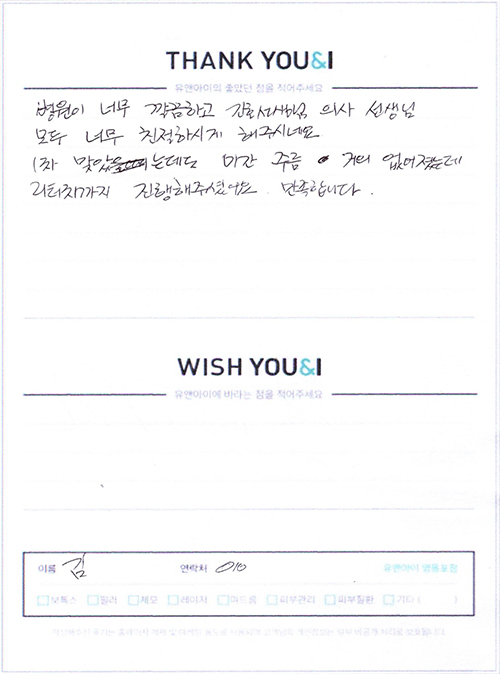 THANK YOU&I
유앤아이의 좋았던 점을 적어주세요
병원이 너무 깨끔하고 간호사선생님 의사 선생님
모두 너무 친절하시게 해주시네요
1차 맞았는데도 미간 주름 거의 없어졌는데
리터치까지 진행해주셨어요. 만족합니다.
WISH YOU&I
유앤아이에 바라는 점을 적어주세요
이름 김 연락처 010 유앤아이 영등포점
보톡스 필러 제모 레이저 여드름 피부관리 피부질환 기타 ( )